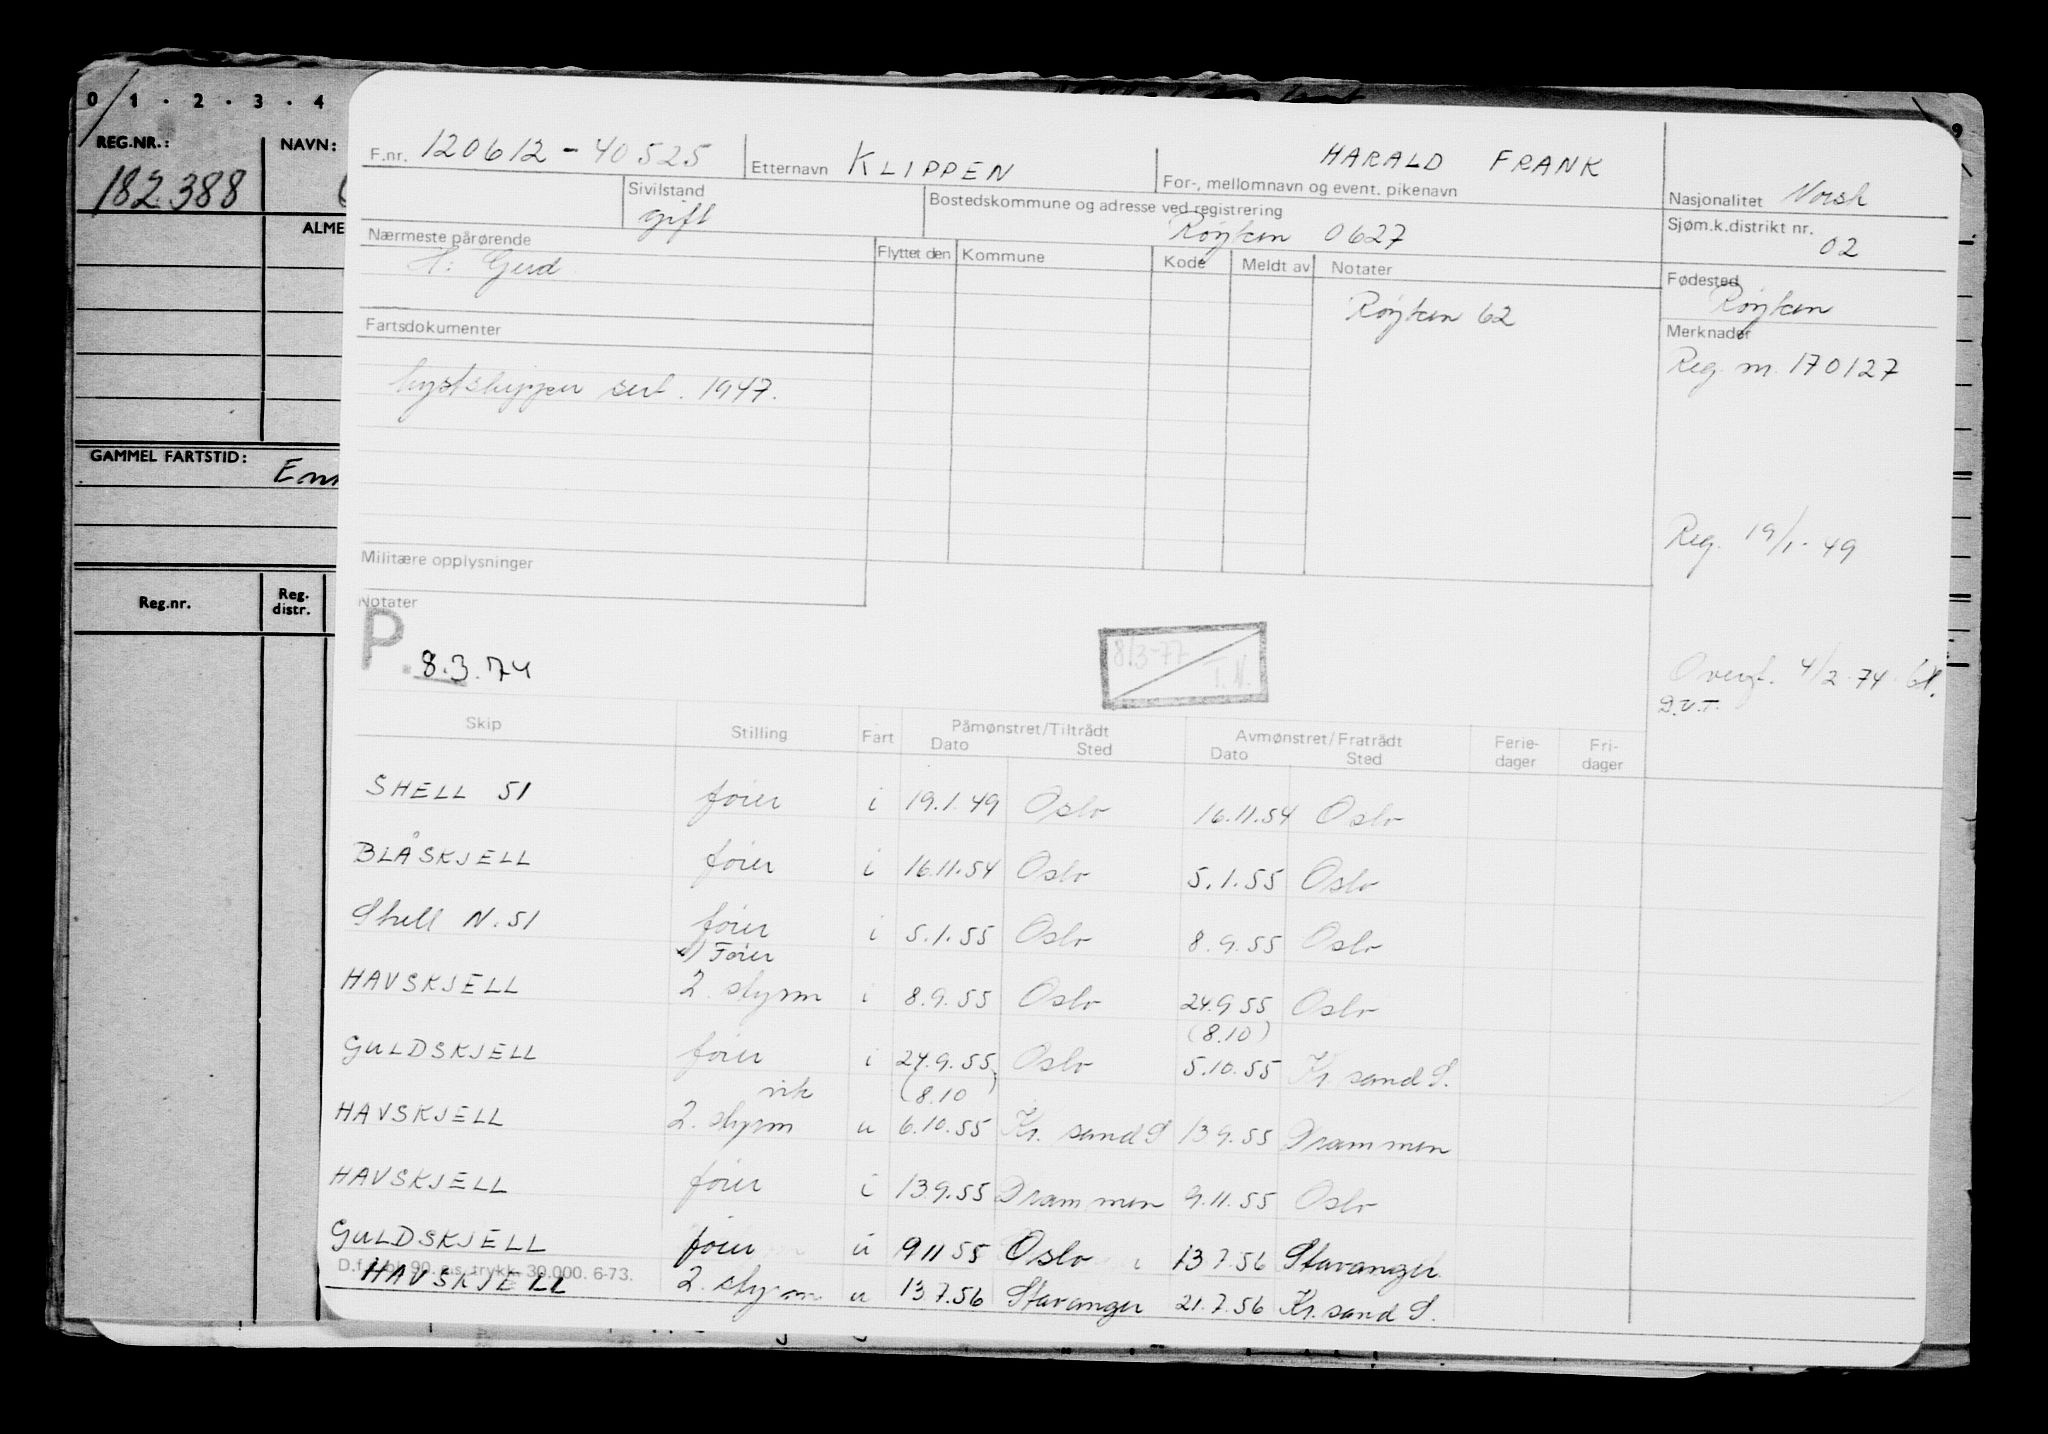 0 / 1 . 2 . 3 . 4
9
REG.NR.: NAVN:
182388
ALME
GAMMEL FARTSTID: En
Reg.nr. Reg. distr.
F.nr. 120612-40525 Etternavn KLIPPEN For-, mellomnavn og event. pikenavn HARALD FRANK Nasjonalitet Norsk
Sivilstand gift Bostedskommune og adresse ved registrering Røyken 0627 Sjøm.k.distrikt nr. 02
Nærmeste pårørende H: Gerd Flyttet den Kommune Kode Meldt av Notater Fødested Røyken
Røyken 62
Fartsdokumenter Merknader
Reg. nr. 170127
kystskipper sert. 1947.
Reg. 19/1-49
Militære opplysninger
Notater
P. 8.3.74
8/3-77 T.N.
Overf. 4/2-74
D.V.T.
Skip Stilling Fart Påmønstret/Tiltrådt Dato Sted Avmønstret/Fratrådt Dato Sted Ferie-dager Fri-dager
SHELL 51 fører i 19.1.49 Oslo 16.11.54 Oslo
BLÅSKJELL fører i 16.11.54 Oslo 5.1.55 Oslo
Shell N.51 fører i 5.1.55 Oslo 8.9.55 Oslo
Fører
HAVSKJELL 2. styrm i 8.9.55 Oslo 24.9.55 Oslo
(8.10)
GULDSKJELL fører i 24.9.55 Oslo 5.10.55 Kr. sand S.
vik (8.10)
HAVSKJELL 2. styrm u 6.10.55 Kr. sand S 13.9.55 Drammen
HAVSKJELL fører i 13.9.55 Drammen 9.11.55 Oslo
GULDSKJELL fører u 9 11 55 Oslo 13.7.56 Stavanger
D.f. bl. 90. a.s. trykk. 30.000. 6-73.
HAVSKJELL 2. styrm u 13.7.56 Stavanger 21.7.56 Kr. sand S.